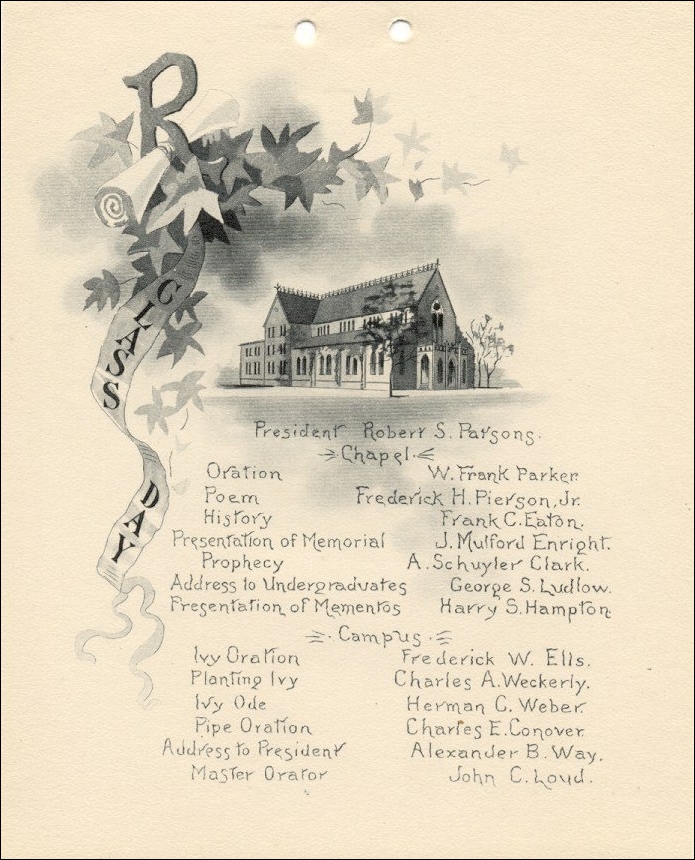 R
CLASS DAY
President Robert S. Parsons.
Chapel.
Oration W. Frank Parker.
Poem Frederick H. Pierson, Jr.
History Frank C. Eaton.
Presentation of Memorial J. Mulford Enright.
Prophecy A. Schuyler Clark.
Address to Undergraduates George S. Ludlow.
Presentation of Mementos Harry S. Hampton.
Campus.
Ivy Oration Frederick W. Ells.
Planting Ivy Charles A. Weckerly.
Ivy Ode Herman C. Weber.
Pipe Oration Charles E. Conover.
Address to President Alexander B. Way.
Master Orator John C. Loud.